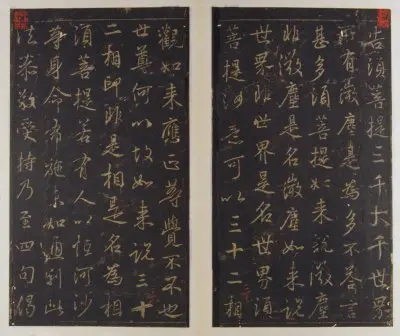 告須菩提三千大千世界
所有微塵是為多不答言
甚多須菩提如来說微塵
非微塵是名微塵如来說
世界非世界是名世界須
菩提汝意可以三十二相
觀如来應正等覺不不也
世尊何以故如来說三十
二相即非是相是名為相
須菩提若有人以恒河沙
等身命布施未如此
法恭敬受持乃至四句偈